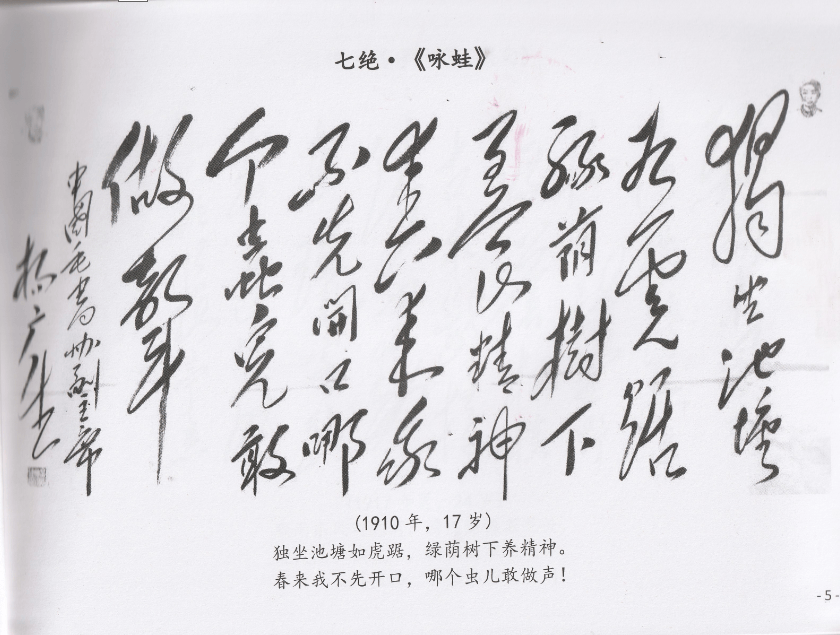 七绝·《咏蛙》
獨坐池塘
如虎踞
綠蔭樹下
養精神
春來我
不先開口哪
个虫兒敢
做聲
(1910 年，17 岁)
独坐池塘如虎踞，绿荫树下养精神。
春来我不先开口，哪个虫儿敢做声！
-5-